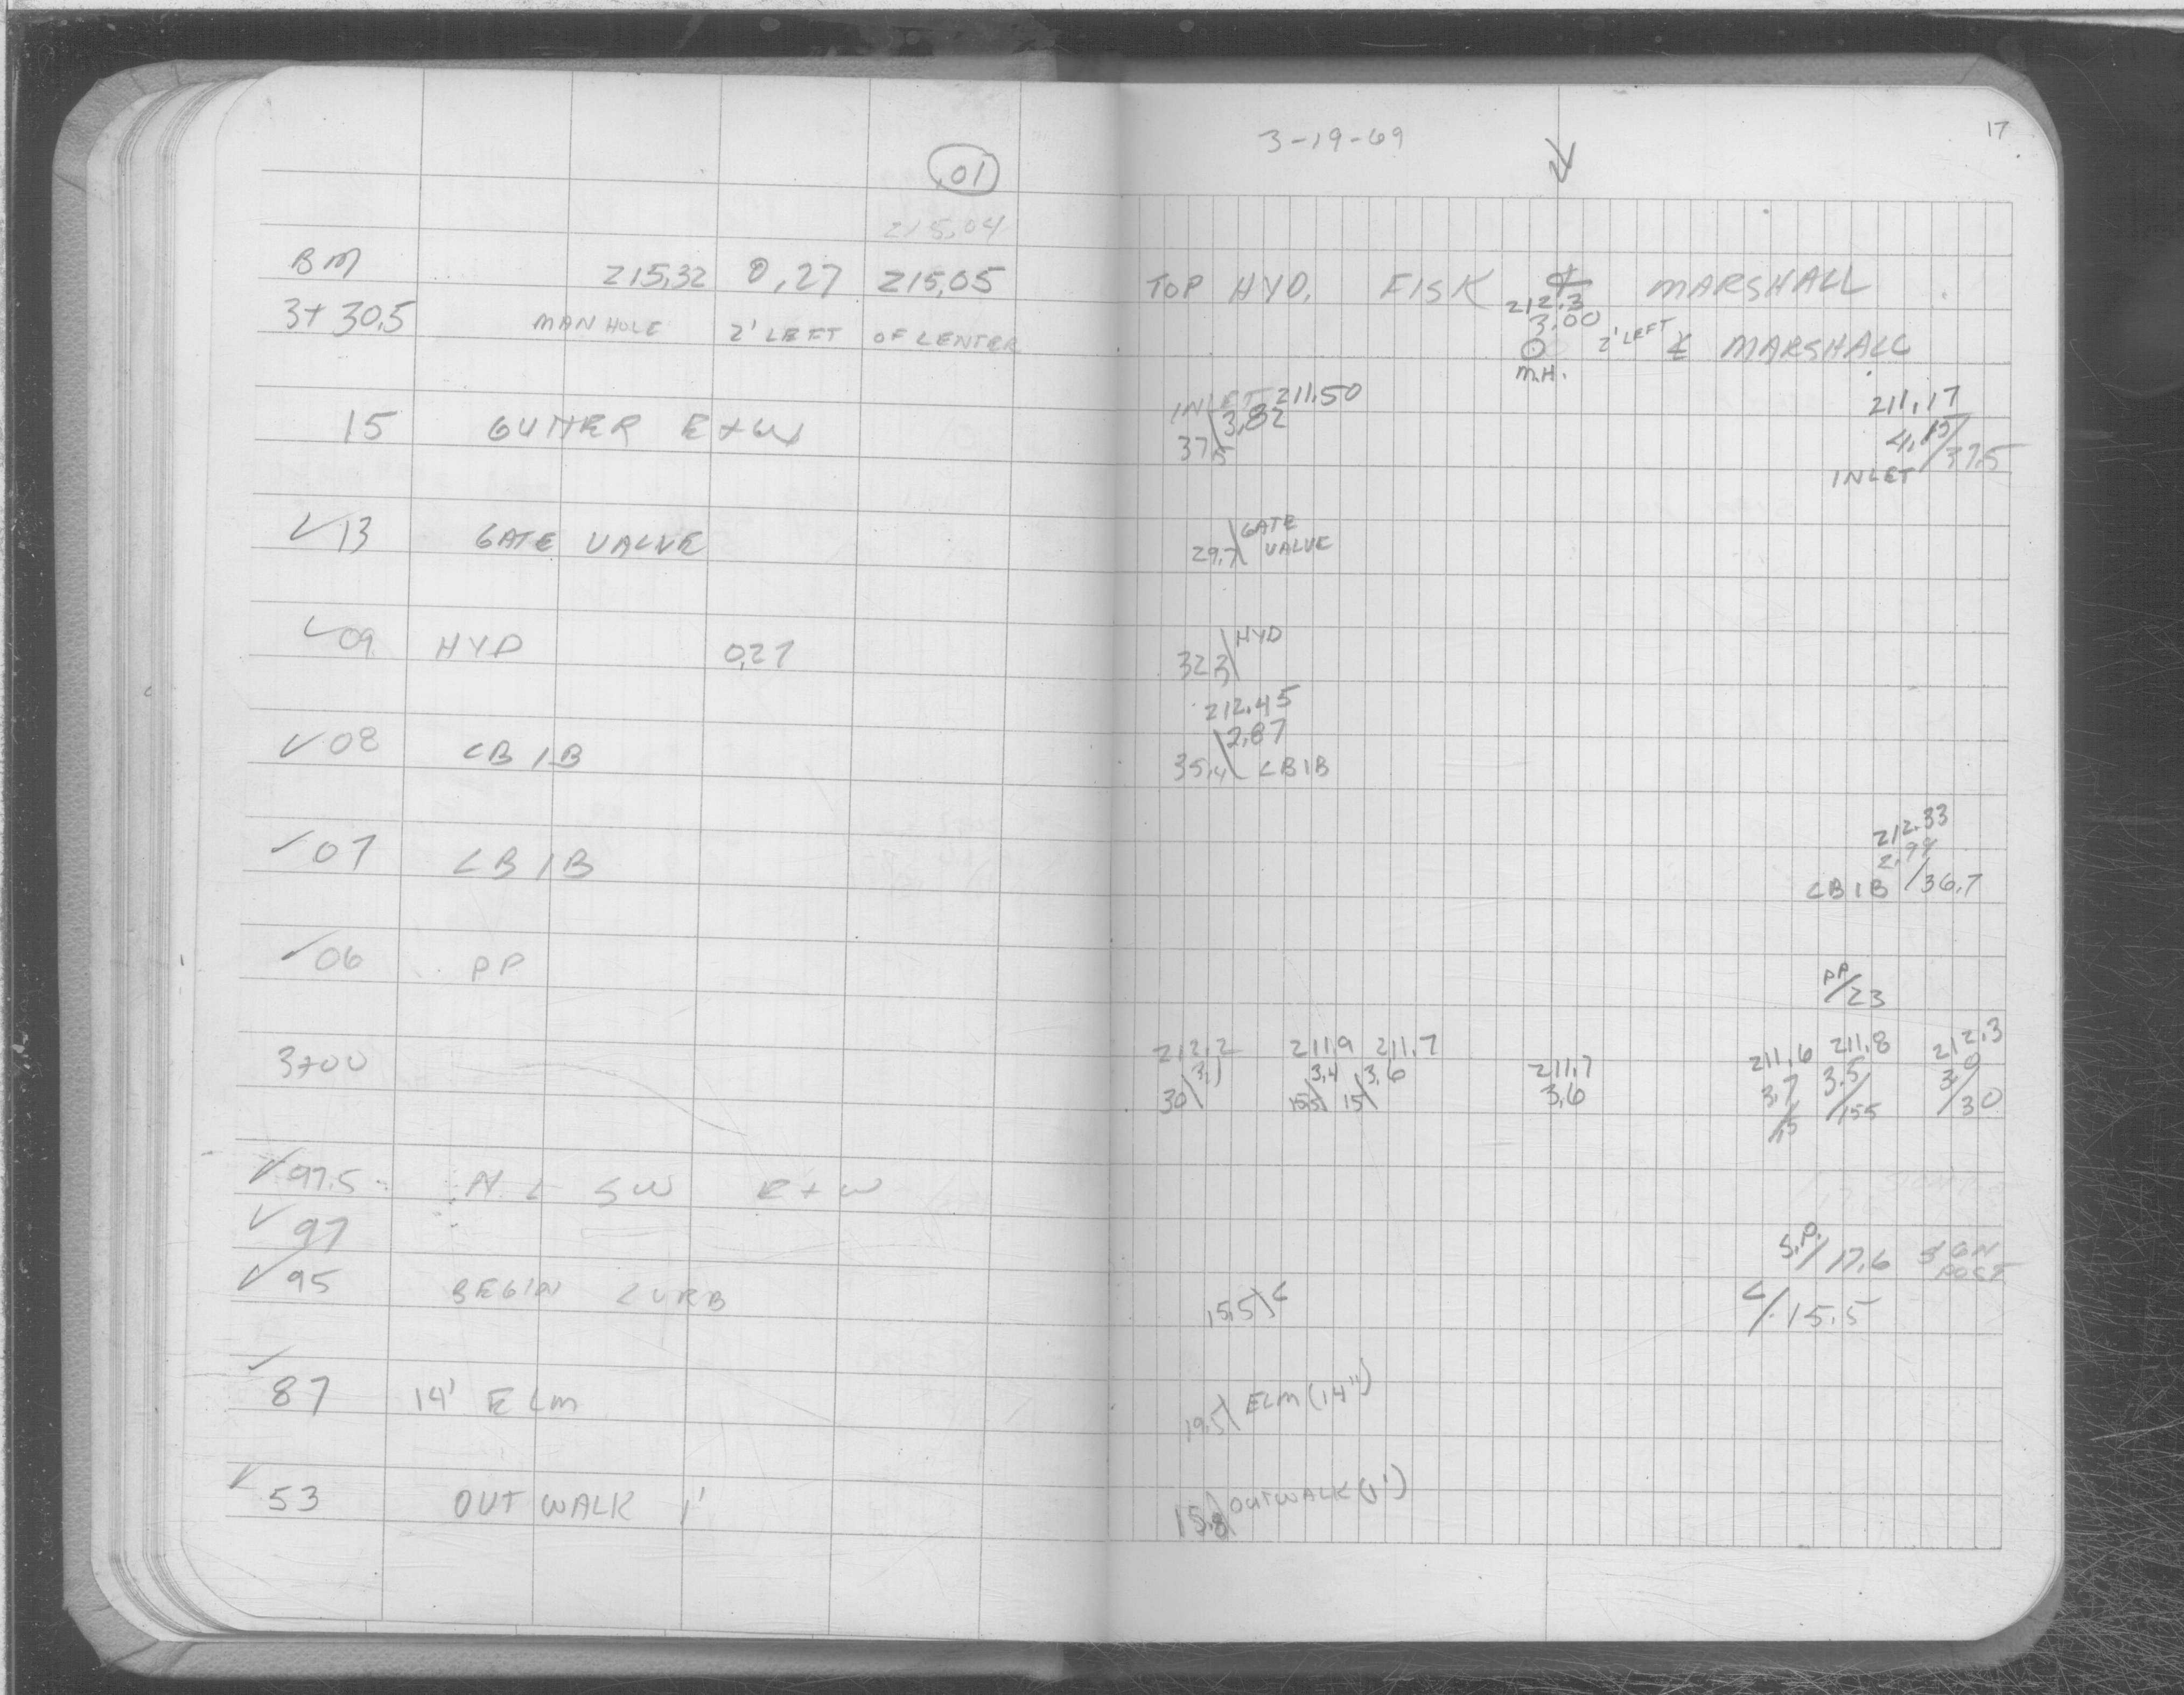 3-19-69
17
.01
215.04
BM 215.32 0.27 215.05 TOP HYD. FISK + MARSHALL
212.3
3.00
3+30.5 MAN HOLE 2' LEFT OF CENTER 2' LEFT ℄ MARSHALL
M.H.
INLET 211.50 211.17
15 GUTTER E+W 3.82 4.15
37.5 37.5
INLET
✓13 GATE VALVE 29.7 GATE VALVE
✓09 HYD 0.27 32.3 HYD
212.45
2.87
✓08 CB 1B 35.4 CB1B
212.33
2.98
✓07 CB 1B CB 1B 36.7
✓06 PP PP 23
212.2 211.9 211.7 211.7 211.6 211.8 212.3
3+00 3.1 3.4 3.6 3.6 3.7 3.5 3.0
30 15.5 15 15 15.5 30
✓97.5 N L SW E+W
✓97 S.P. 17.6 SIGN POST
✓95 BEGIN CURB 15.5 C C 15.5
✓87 14' ELM 19.5 ELM (14")
✓53 OUT WALK 1' 15.8 OUTWALK (1')